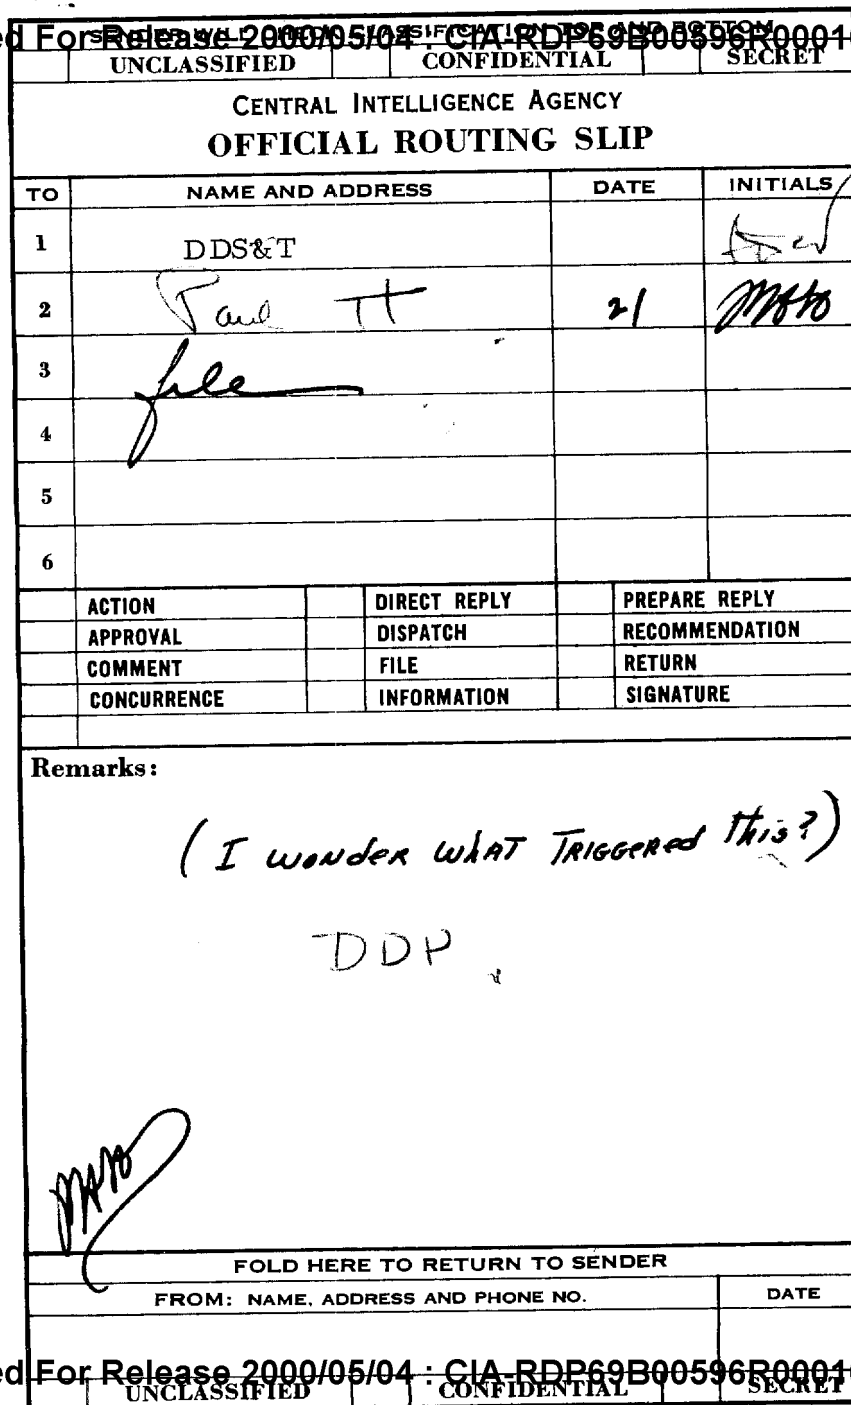 SENDER WILL CHECK CLASSIFICATION TOP AND BOTTOM
ed For Release 2000/05/04 : CIA-RDP69B00596R00010
UNCLASSIFIED CONFIDENTIAL SECRET
CENTRAL INTELLIGENCE AGENCY
OFFICIAL ROUTING SLIP
TO NAME AND ADDRESS DATE INITIALS
1 DDS&T
2 Paul 21
3 file
4
5
6
ACTION DIRECT REPLY PREPARE REPLY
APPROVAL DISPATCH RECOMMENDATION
COMMENT FILE RETURN
CONCURRENCE INFORMATION SIGNATURE
Remarks:
(I wonder what triggered this?)
DDP
FOLD HERE TO RETURN TO SENDER
FROM: NAME, ADDRESS AND PHONE NO. DATE
ed For Release 2000/05/04 : CIA-RDP69B00596R00010
UNCLASSIFIED CONFIDENTIAL SECRET